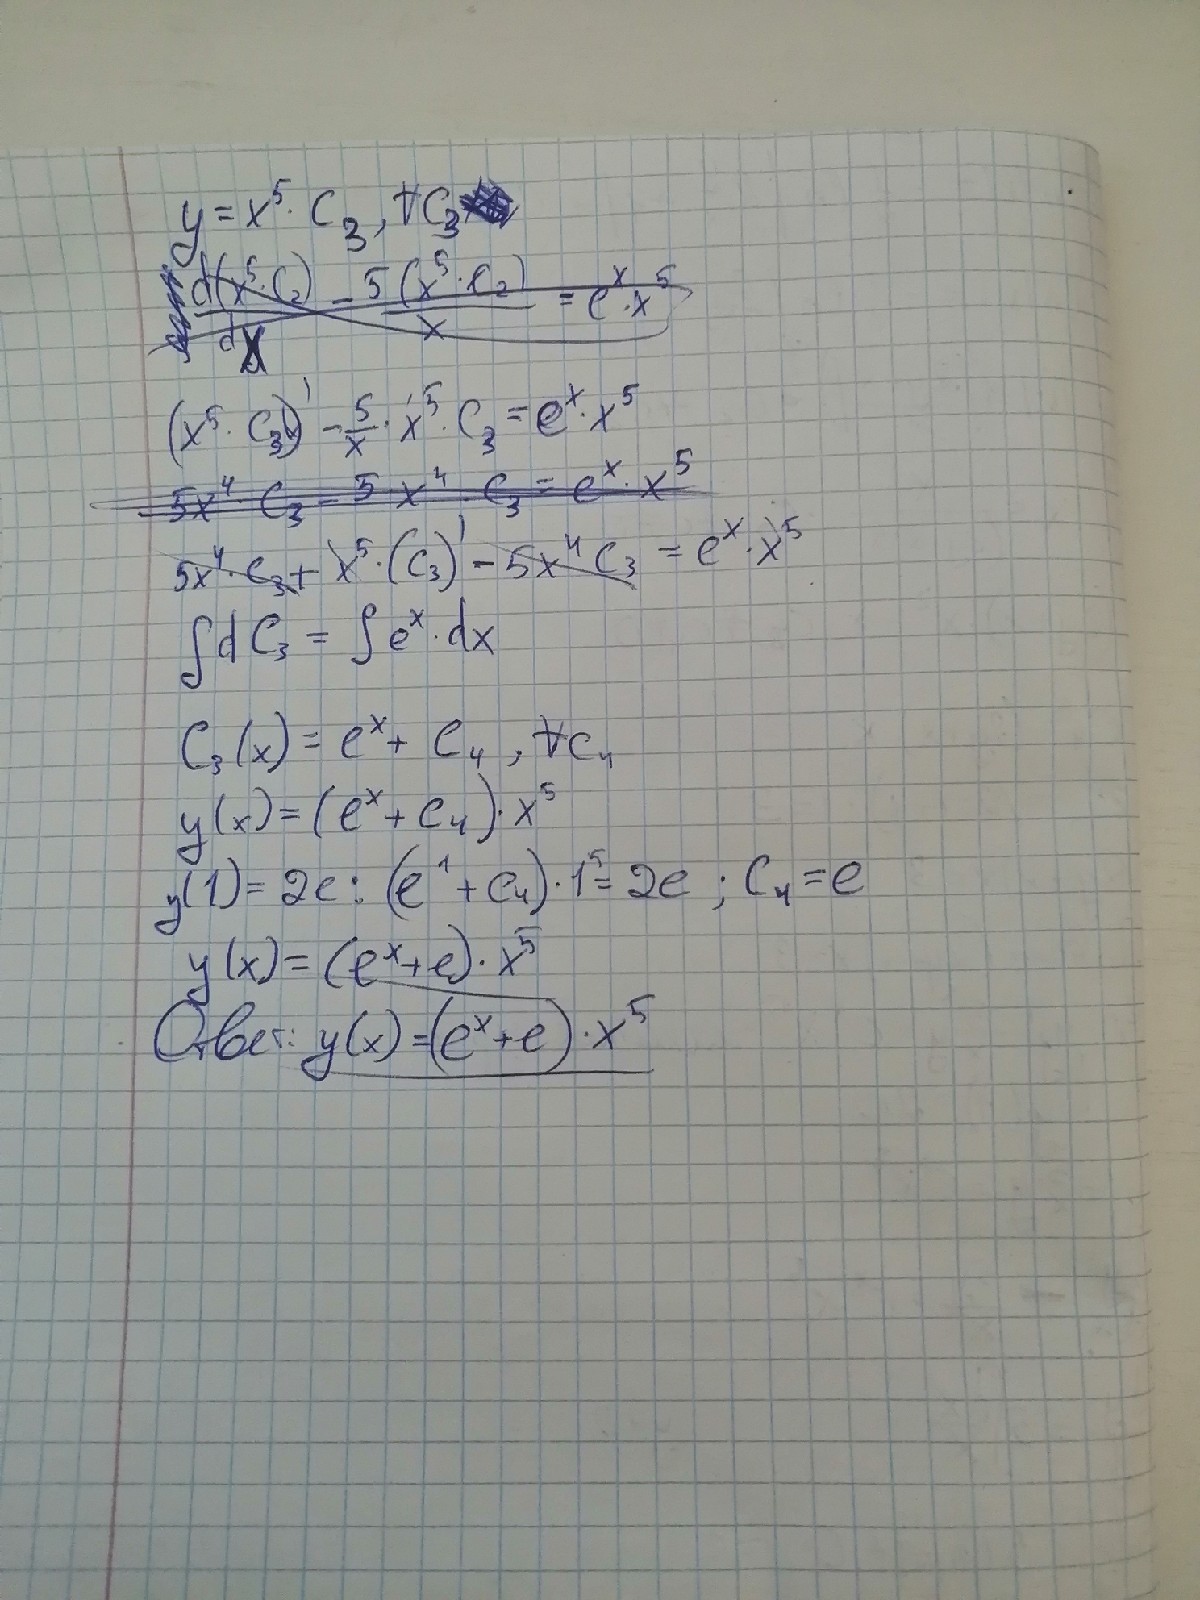 y = x⁵ · C₃, ∀C₃
d(x⁵·C₂)/dx - 5(x⁵·C₂)/x = eˣ·x⁵
(x⁵ · C₃)' - 5/x · x⁵ · C₃ = eˣ · x⁵
5x⁴ · C₃ - 5 x⁴ · C₃ = eˣ · x⁵
5x⁴ · C₃ + x⁵ · (C₃)' - 5x⁴ C₃ = eˣ · x⁵
∫dC₃ = ∫eˣ · dx
C₃(x) = eˣ + C₄, ∀C₄
y(x) = (eˣ + C₄) · x⁵
y(1) = 2e: (e¹ + C₄) · 1⁵ = 2e ; C₄ = e
y(x) = (eˣ + e) · x⁵
Ответ: y(x) = (eˣ + e) · x⁵